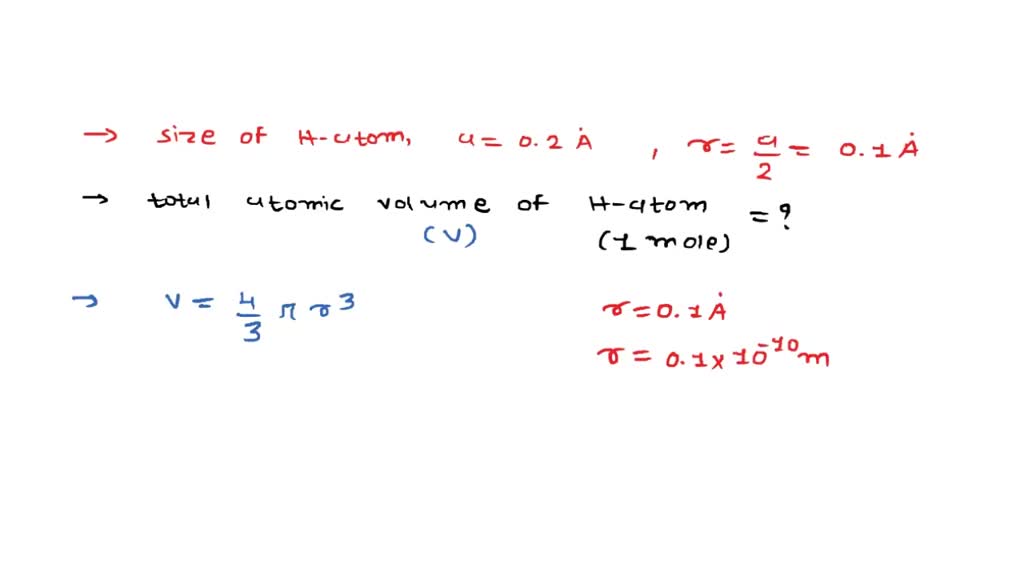 → size of H-atom, a = 0.2 Å , r = a/2 = 0.1 Å
→ total atomic volume of H-atom = ?
(V) (1 mole)
→ V = 4/3 π r³ r = 0.1 Å
r = 0.1 x 10⁻¹⁰ m